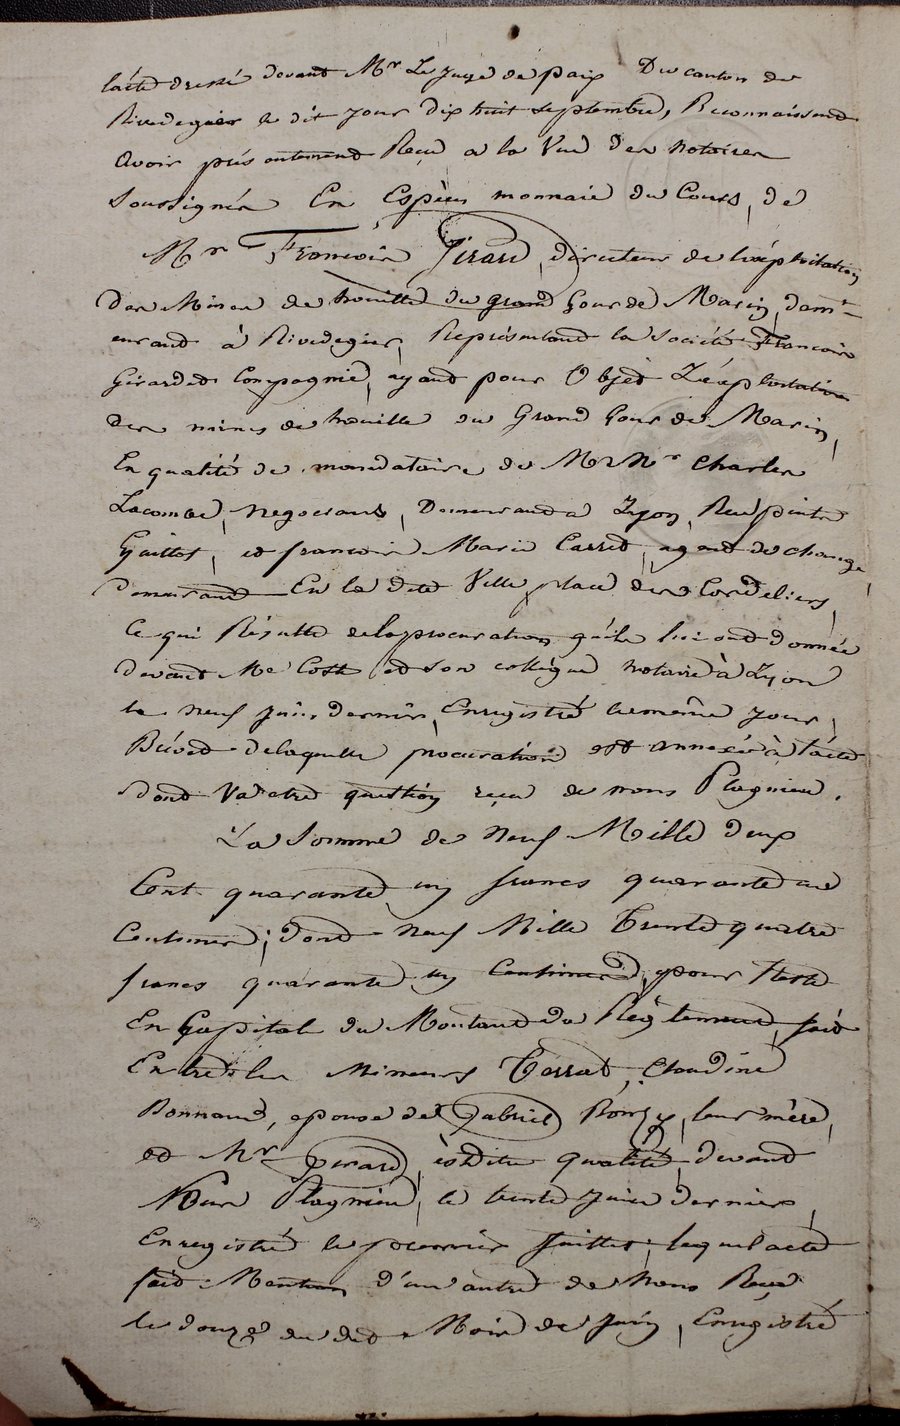 l'acte dressé devant Mr Le Juge de paix Du canton de
Rivedegier le dit jour dix huit septembre, Reconnaissent
avoir présentement Reçu a la Vue des notaires
soussignés En Espèces monnaie du Cours, de
Mr François Girard, directeur de l'exploitation
des Mines de houille du grand Gour de Marin, dem-
eurand à Rivedegier, Représentand la Société François
Girard et Compagnie, ayand pour Objet L'exploitation
des mines de houille du Grand Gour de Marin,
En qualité de mandataire de Mr Mr Charles
Lacombe, negociand, Demeurand a Lyon, Rue pointe
et françois Marie Carret, agend de change,
Demeurand En la dite Ville, place des Cordeliers,
Ce qui Résulte de la procuration qu'ils lui ond donnée
devand Me Coste et son collègue notaire à Lyon
le neuf juin dernier, Enregistré le même jour,
Brévet de laquelle procuration est annexée à l'acte
dond Va etre question reçu de nous Plagnieu.
La Somme de neuf Mille deux
Cent quarante un francs quarante un
Centimes; dond neuf Mille Trente quatre
francs quarante un Centimes, pour Reste
En Capital du Montand du Règlement, fait
Entre les Mineurs Terrat, Claudine
Bonnand, epouse de Gabriel leur mère,
et Mr Girard, èsdite qualité, devand
Nous Plagnieu, le trente juin dernier,
Enregistré le premier Juillet, lequel acte
fait Mention d'un autre de nous Reçu
le douze du dit Mois de Juin, Enrégistré